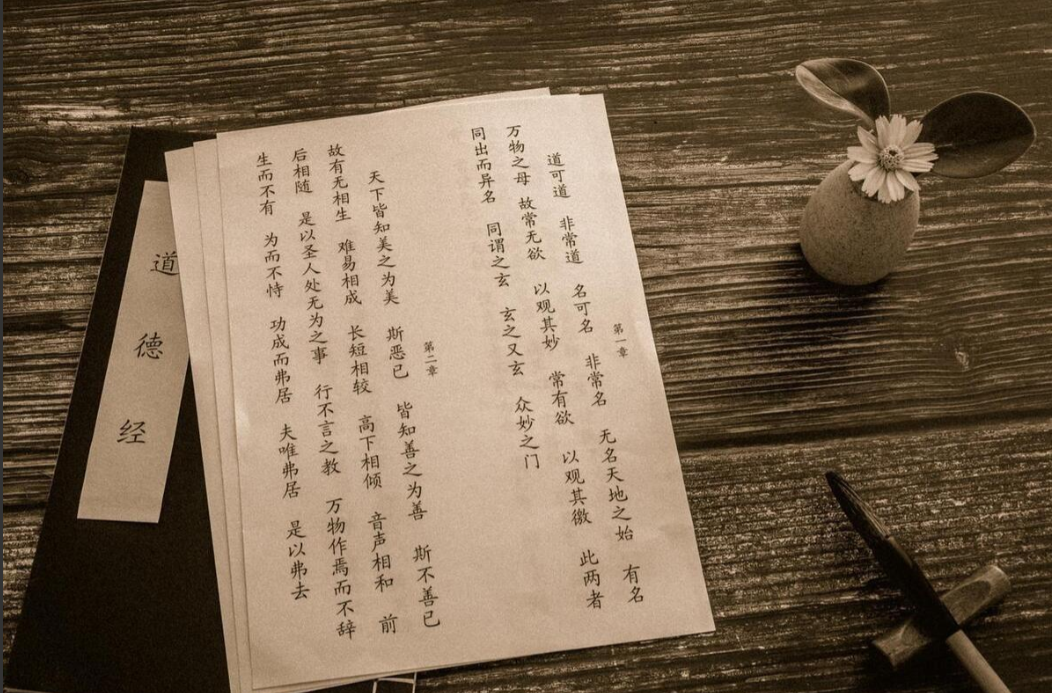 第一章
道可道 非常道 名可名 非常名 无名天地之始 有名
万物之母 故常无欲 以观其妙 常有欲 以观其徼 此两者
同出而异名 同谓之玄 玄之又玄 众妙之门
第二章
天下皆知美之为美 斯恶已 皆知善之为善 斯不善已
故有无相生 难易相成 长短相较 高下相倾 音声相和 前
后相随 是以圣人处无为之事 行不言之教 万物作焉而不辞
生而不有 为而不恃 功成而弗居 夫唯弗居 是以弗去
道德经